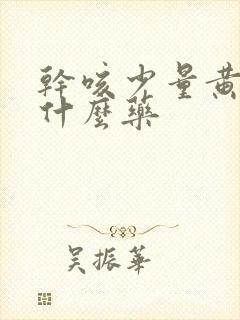 幹咳少量黃
什麼藥
吳振華